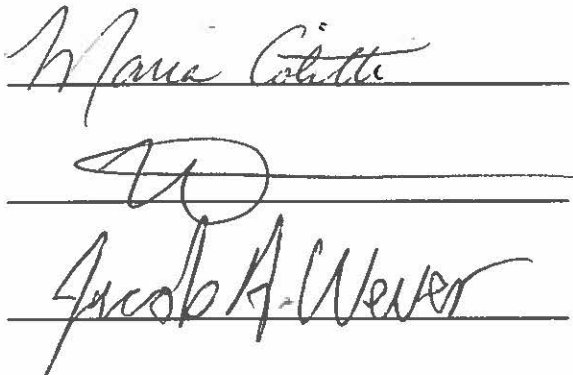 Maria Colitti
Jacob A. Wever